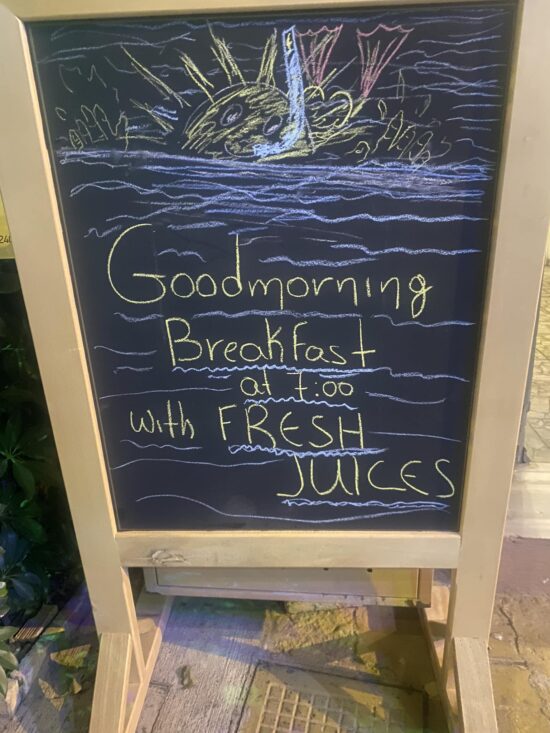 Goodmorning
Breakfast
at 7:00
with FRESH
JUICES